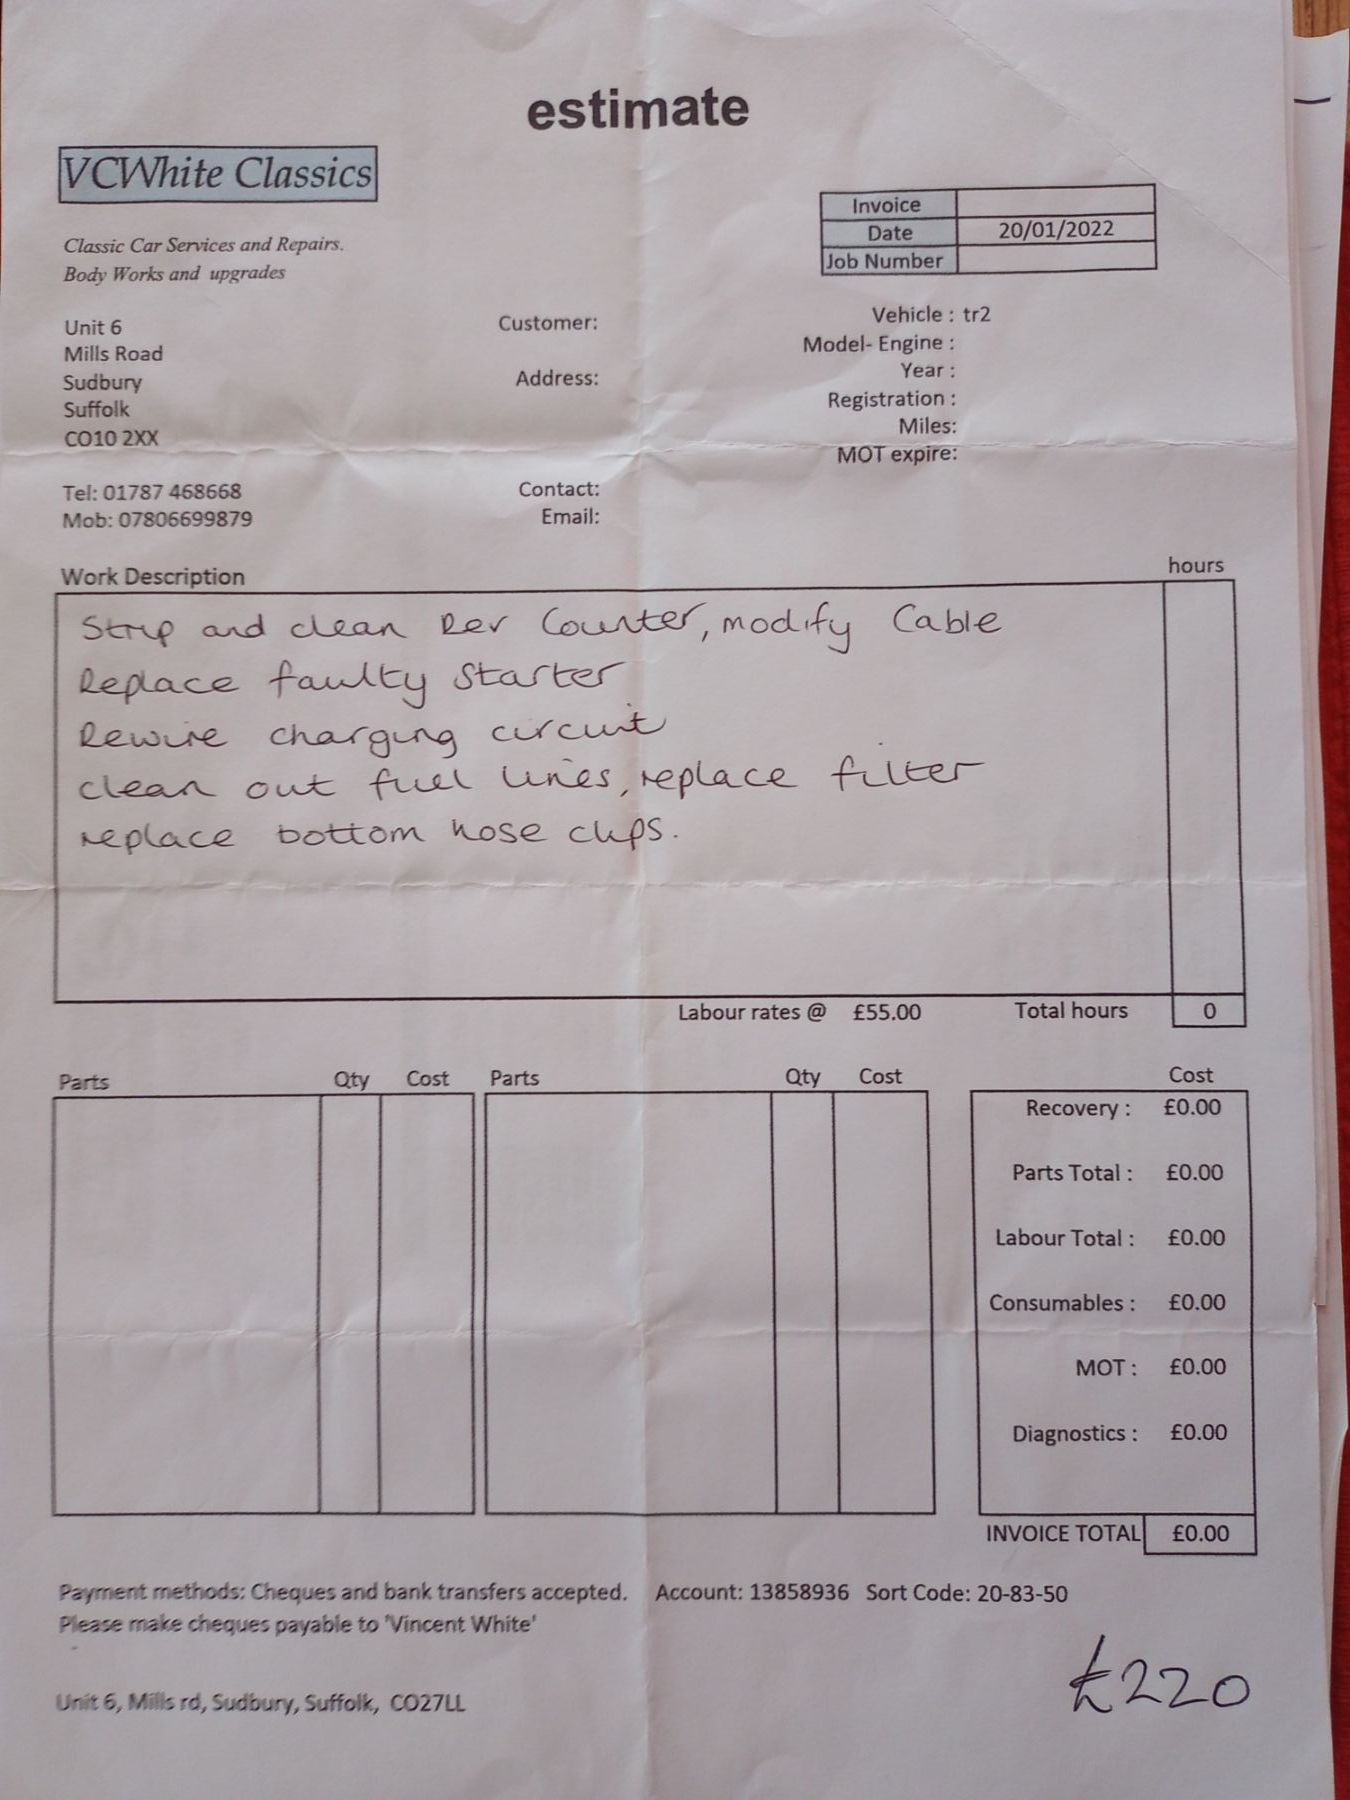 estimate
VCWhite Classics
Classic Car Services and Repairs.
Body Works and upgrades
Invoice
Date 20/01/2022
Job Number
Unit 6
Mills Road
Sudbury
Suffolk
CO10 2XX
Tel: 01787 468668
Mob: 07806699879
Customer:
Address:
Contact:
Email:
Vehicle : tr2
Model- Engine :
Year :
Registration :
Miles:
MOT expire:
Work Description hours
Strip and clean Rev Counter, modify Cable
Replace faulty starter
Rewire charging circuit
clean out fuel lines, replace filter
replace bottom hose clips.
Labour rates @ £55.00 Total hours 0
Parts Qty Cost Parts Qty Cost Cost
Recovery : £0.00
Parts Total : £0.00
Labour Total : £0.00
Consumables : £0.00
MOT : £0.00
Diagnostics : £0.00
INVOICE TOTAL £0.00
Payment methods: Cheques and bank transfers accepted. Account: 13858936 Sort Code: 20-83-50
Please make cheques payable to 'Vincent White'
£220
Unit 6, Mills rd, Sudbury, Suffolk, CO27LL